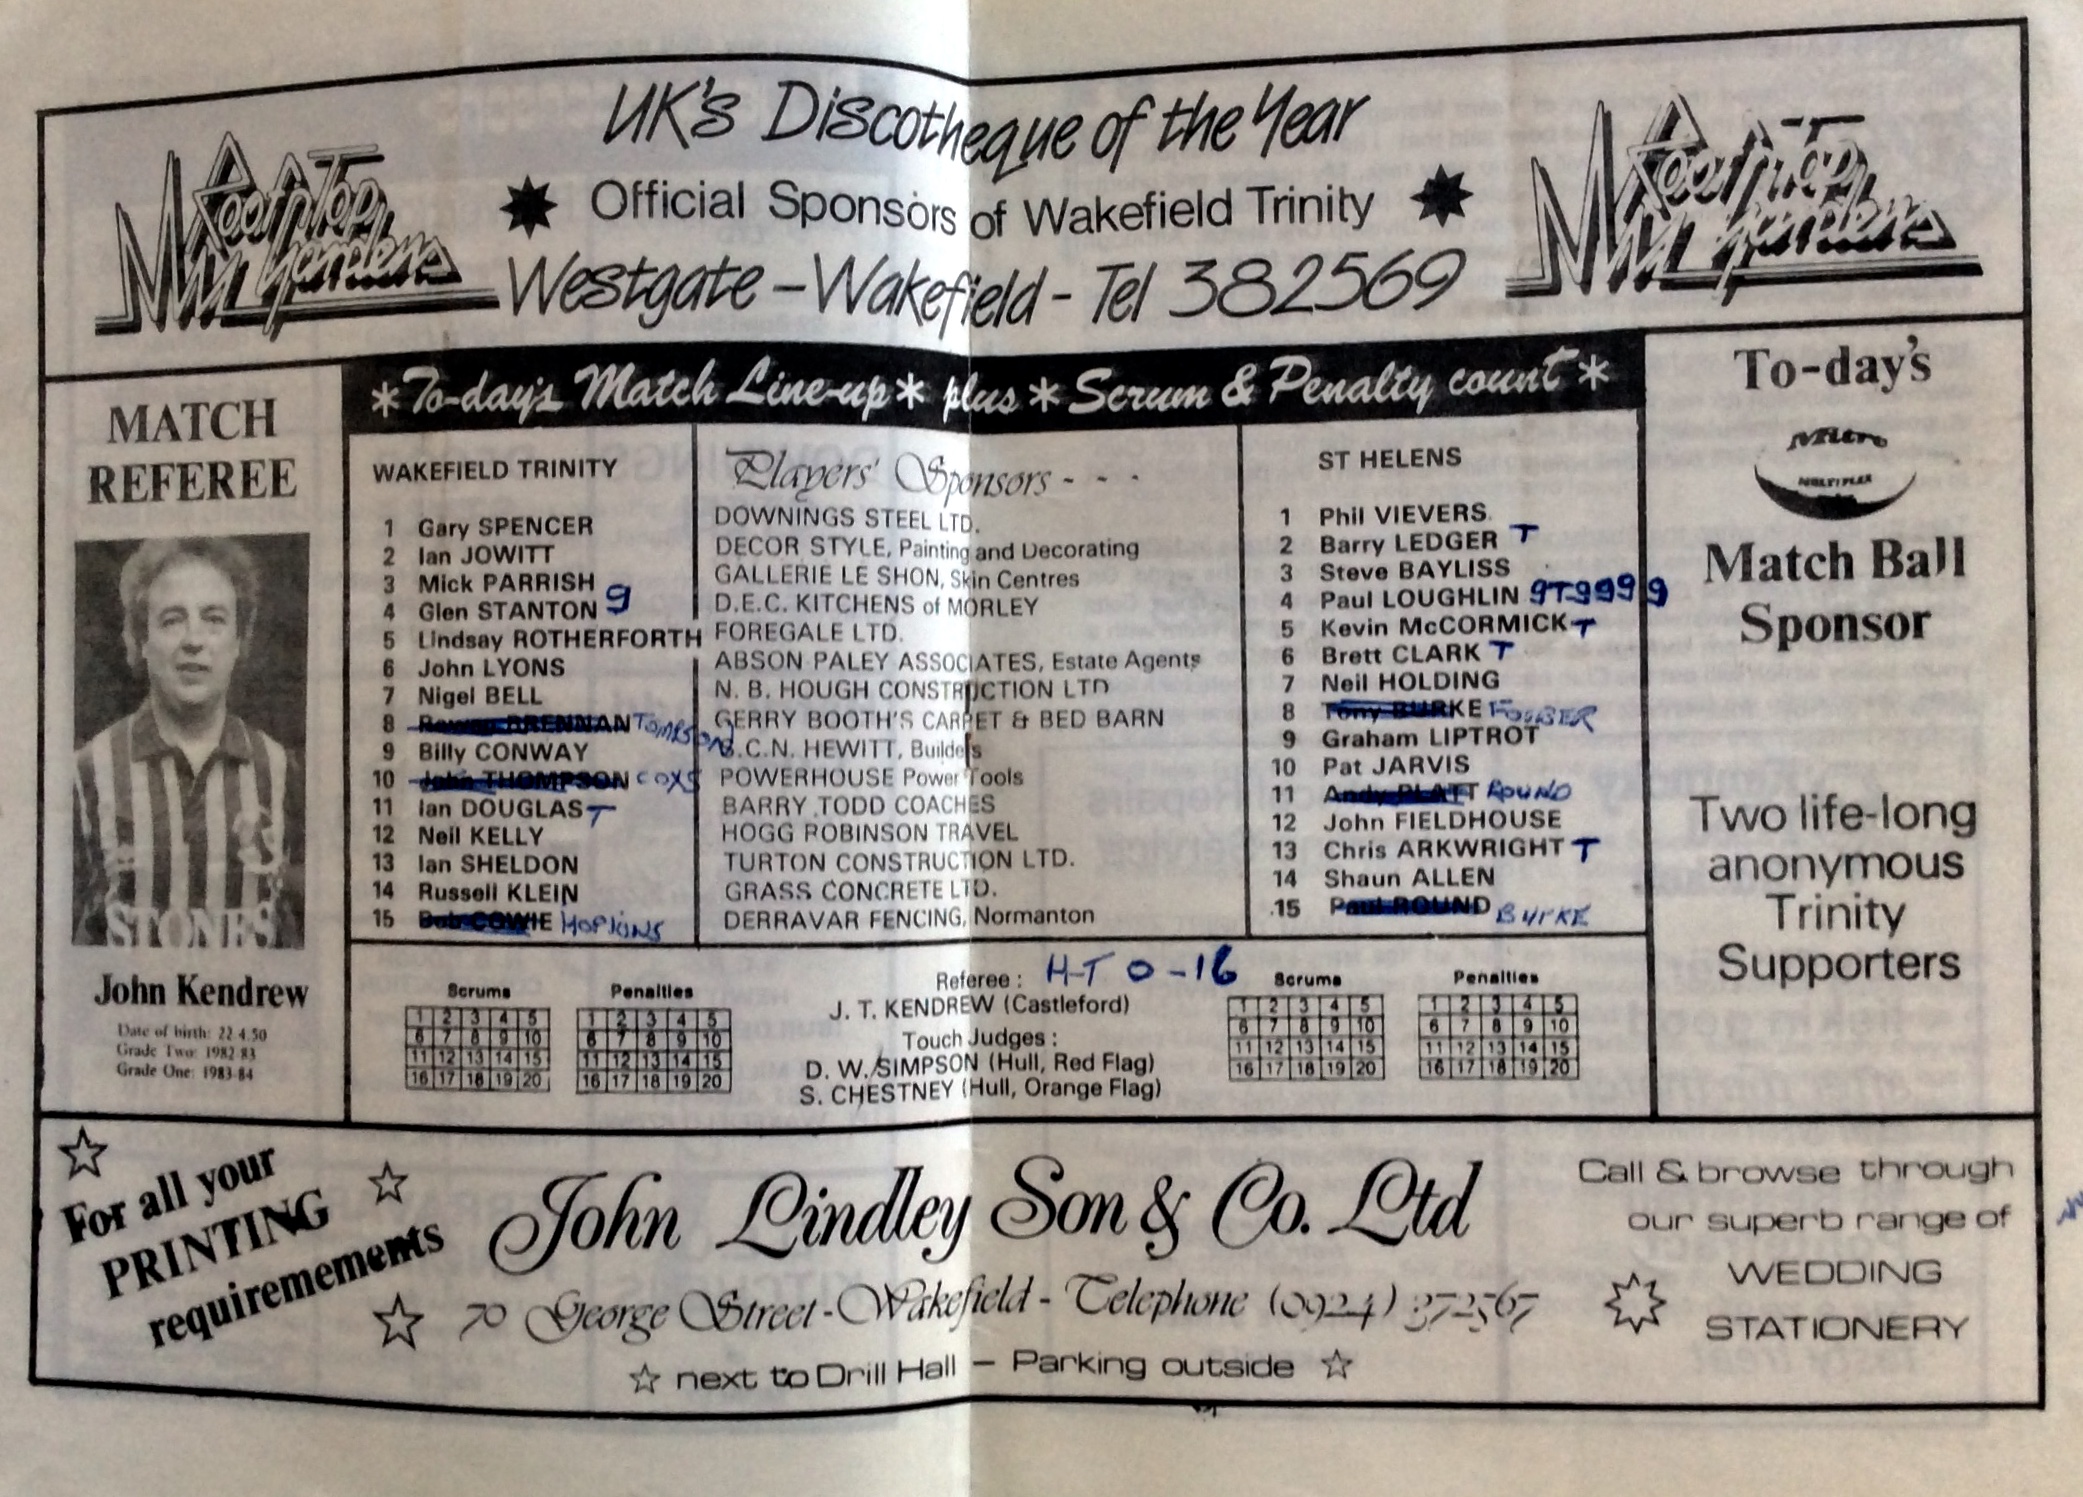 UK's Discotheque of the Year
Roof Top Gardens
Official Sponsors of Wakefield Trinity
Roof Top Gardens
Westgate – Wakefield - Tel 382569
MATCH
REFEREE
STONES
John Kendrew
Date of birth: 22.4.50
Grade Two: 1982-83
Grade One: 1983-84
*To-day's Match Line-up* plus *Scrum & Penalty count*
WAKEFIELD TRINITY
1 Gary SPENCER
2 Ian JOWITT
3 Mick PARRISH
4 Glen STANTON 9
5 Lindsay ROTHERFORTH
6 John LYONS
7 Nigel BELL
8 BRENNAN TOMPSON
9 Billy CONWAY
10 John THOMPSON COXS
11 Ian DOUGLAS T
12 Neil KELLY
13 Ian SHELDON
14 Russell KLEIN
15 Bob COWIE HOPKINS
Players' Sponsors - - -
DOWNINGS STEEL LTD.
DECOR STYLE, Painting and Decorating
GALLERIE LE SHON, Skin Centres
D.E.C. KITCHENS of MORLEY
FOREGALE LTD.
ABSON PALEY ASSOCIATES, Estate Agents
N. B. HOUGH CONSTRUCTION LTD
GERRY BOOTH'S CARPET & BED BARN
C.N. HEWITT, Builders
POWERHOUSE Power Tools
BARRY TODD COACHES
HOGG ROBINSON TRAVEL
TURTON CONSTRUCTION LTD.
GRASS CONCRETE LTD.
DERRAVAR FENCING, Normanton
ST HELENS
1 Phil VIEVERS
2 Barry LEDGER T
3 Steve BAYLISS
4 Paul LOUGHLIN 9T9999
5 Kevin McCORMICK T
6 Brett CLARK T
7 Neil HOLDING
8 Tony BURKE
9 Graham LIPTROT
10 Pat JARVIS
11 Andy PLATT ROUND
12 John FIELDHOUSE
13 Chris ARKWRIGHT T
14 Shaun ALLEN
15 Paul ROUND BURKE
Scrums
1 2 3 4 5
6 7 8 9 10
11 12 13 14 15
16 17 18 19 20
Penalties
1 2 3 4 5
6 7 8 9 10
11 12 13 14 15
16 17 18 19 20
Referee : H-T 0-16
J. T. KENDREW (Castleford)
Touch Judges :
D. W. SIMPSON (Hull, Red Flag)
S. CHESTNEY (Hull, Orange Flag)
Scrums
1 2 3 4 5
6 7 8 9 10
11 12 13 14 15
16 17 18 19 20
Penalties
1 2 3 4 5
6 7 8 9 10
11 12 13 14 15
16 17 18 19 20
To-day's
Mitre
MULTIPLEX
Match Ball
Sponsor
Two life-long
anonymous
Trinity
Supporters
For all your
PRINTING
requirements
John Lindley Son & Co. Ltd
70 George Street - Wakefield - Telephone (0924) 372567
next to Drill Hall – Parking outside
Call & browse through
our superb range of
WEDDING
STATIONERY